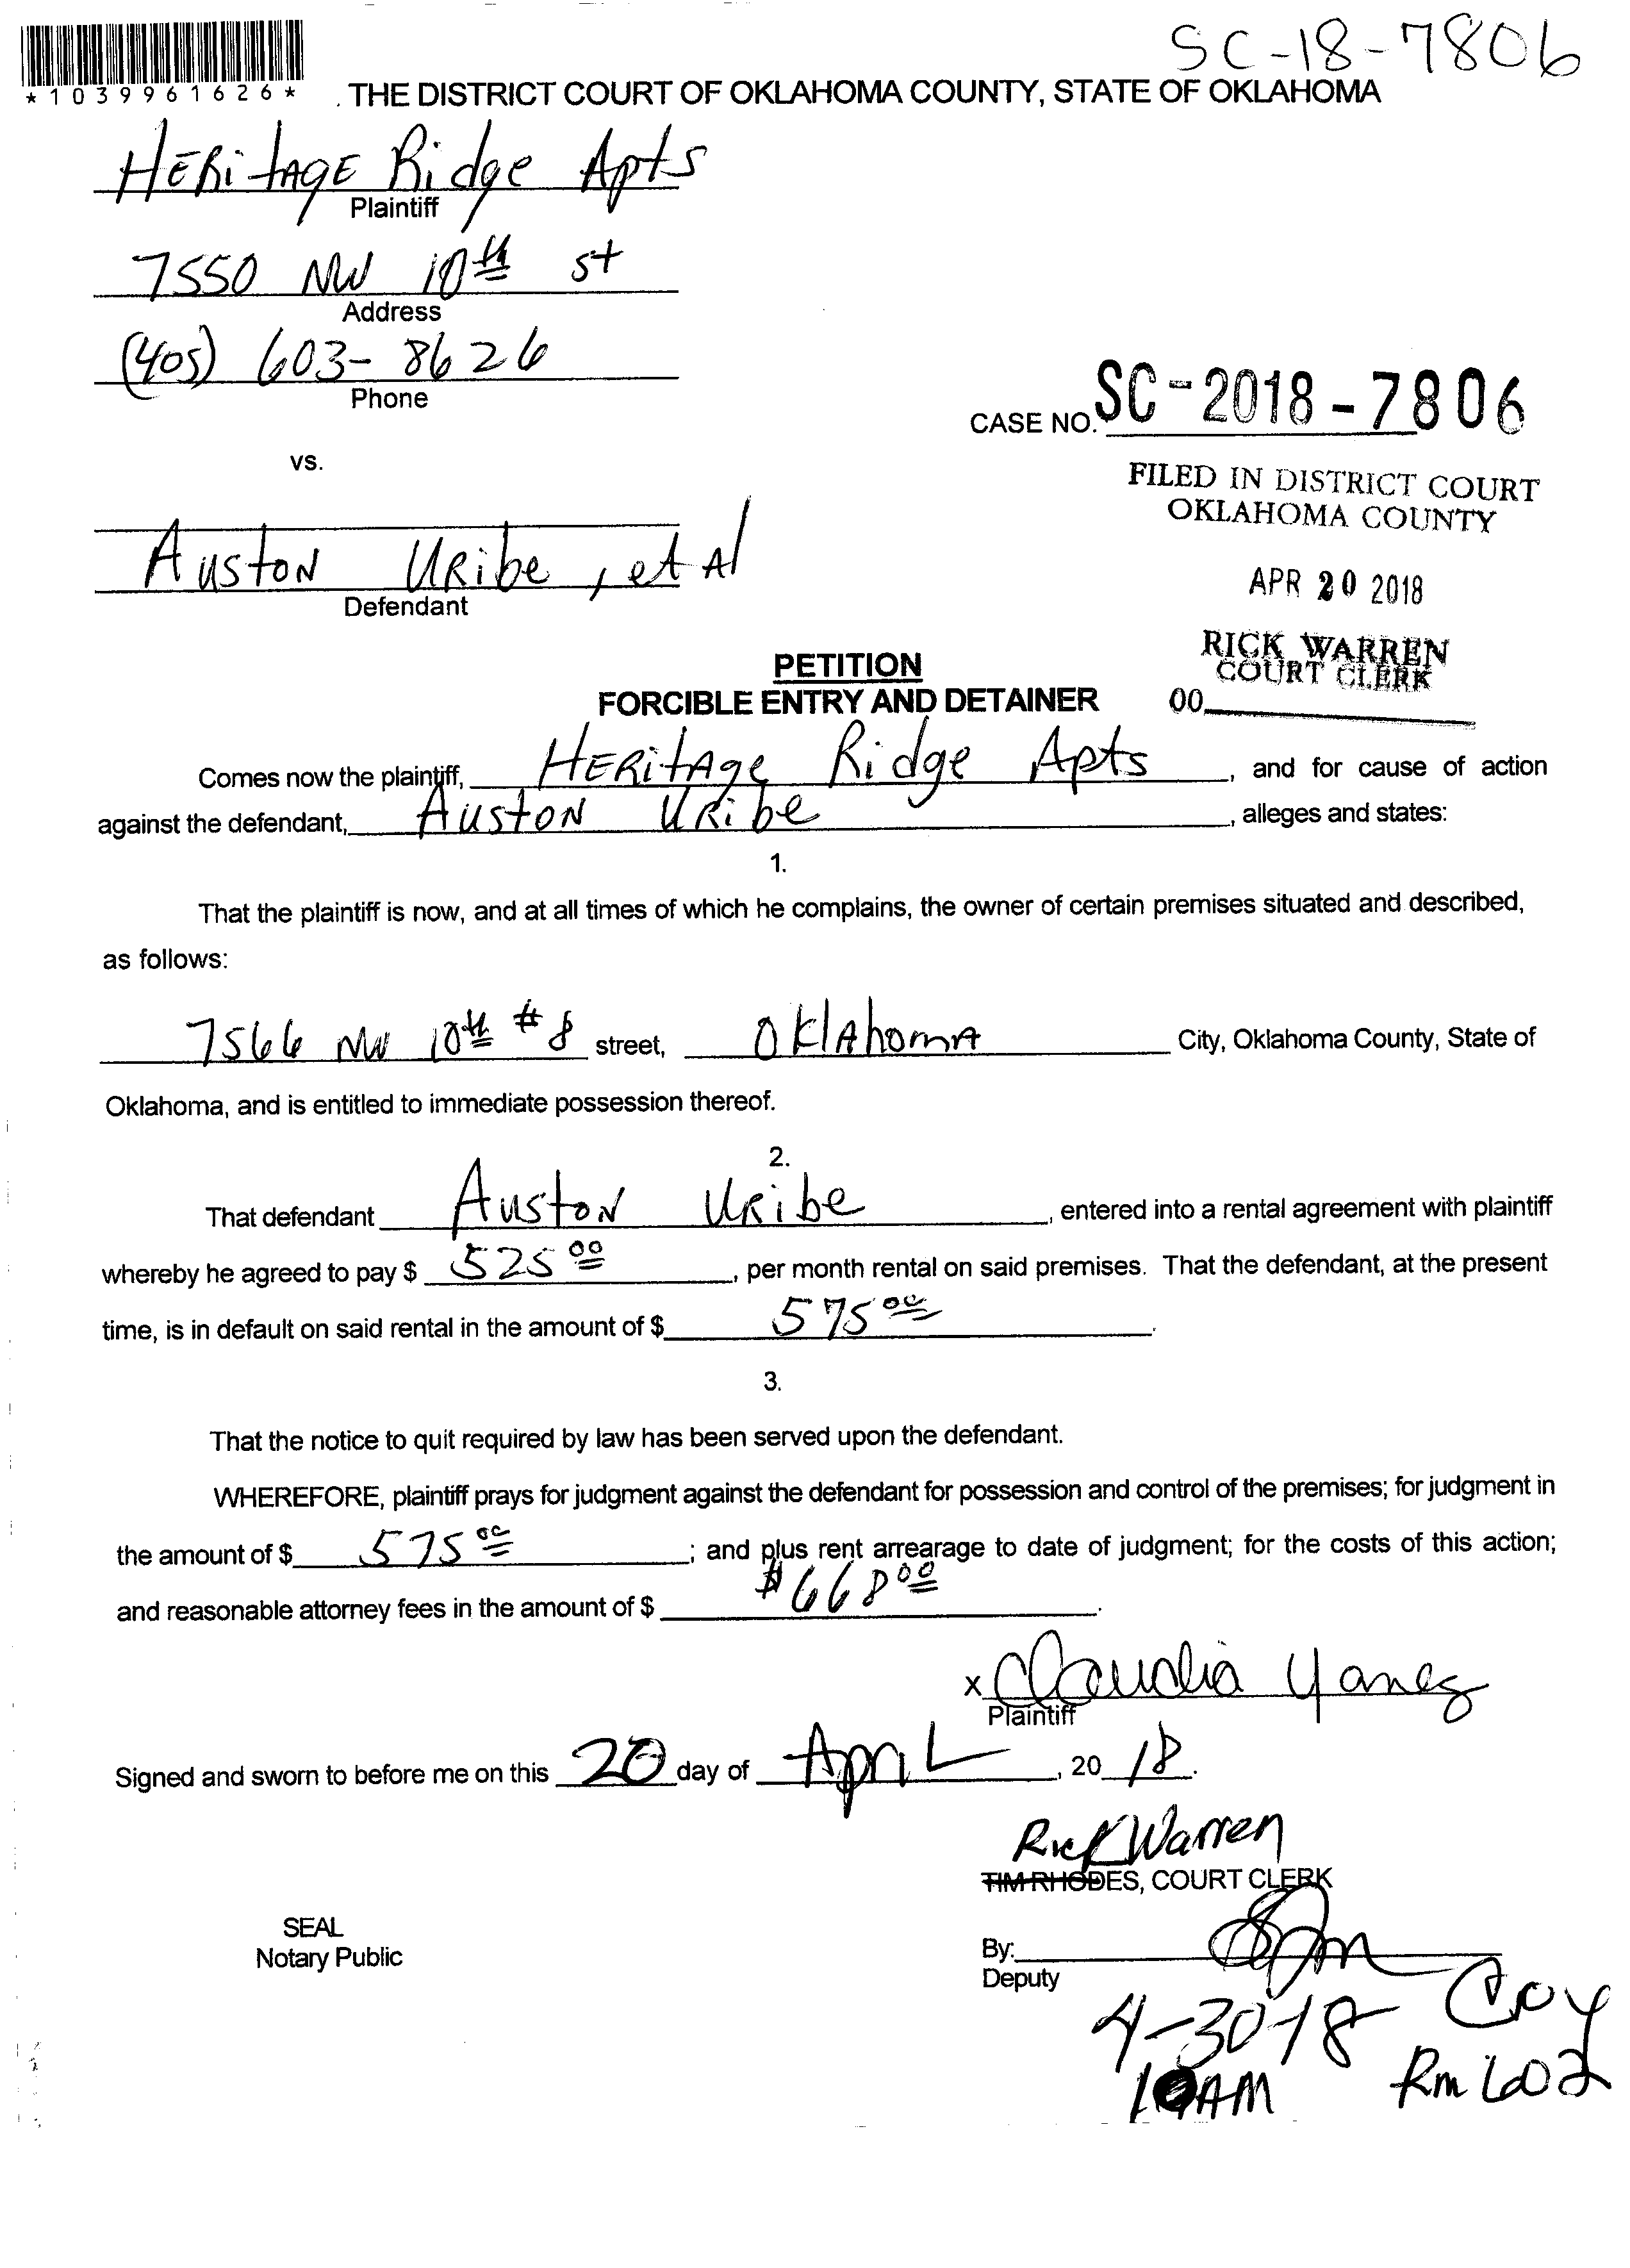 SC-18-7806
*1039961626*
. THE DISTRICT COURT OF OKLAHOMA COUNTY, STATE OF OKLAHOMA
HERitAgE Ridge Apts
Plaintiff
7550 NW 10th st
Address
(405) 603-8626
Phone
CASE NO. SC-2018-7806
vs.
FILED IN DISTRICT COURT
OKLAHOMA COUNTY
AustoN URibe, et Al
Defendant
APR 20 2018
RICK WARREN
COURT CLERK
00
PETITION
FORCIBLE ENTRY AND DETAINER
Comes now the plaintiff, HERitAge Ridge Apts, and for cause of action
against the defendant, AustoN URibe, alleges and states:
1.
That the plaintiff is now, and at all times of which he complains, the owner of certain premises situated and described,
as follows:
7566 NW 10th #8 street, OklAhomA City, Oklahoma County, State of
Oklahoma, and is entitled to immediate possession thereof.
2.
That defendant AustoN URibe, entered into a rental agreement with plaintiff
whereby he agreed to pay $ 525 00, per month rental on said premises. That the defendant, at the present
time, is in default on said rental in the amount of $ 575 00.
3.
That the notice to quit required by law has been served upon the defendant.
WHEREFORE, plaintiff prays for judgment against the defendant for possession and control of the premises; for judgment in
the amount of $ 575 00; and plus rent arrearage to date of judgment; for the costs of this action;
and reasonable attorney fees in the amount of $ $668 00.
x Claudia Yanez
Plaintiff
Signed and sworn to before me on this 20 day of ApriL, 20 18.
Rick Warren
TIM RHODES, COURT CLERK
SEAL
Notary Public
By:
Deputy
4-30-18 Coy
10AM Rm 602